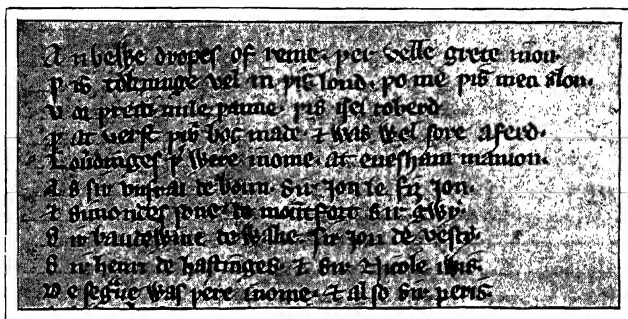 A n dropes of reine. þer velle grete inou.
þ is tokninge vel in þis lond. þo me þis men slou.
v or þretti mile þanne. þis isei roberd
þ at verst þis boc made. ⁊ was wel sore aferd.
Louerdinges þ were inome. at euesham manion.
A s sir vmfrai de boun. sir Jon le fiz Jon.
⁊ simondes sone de montfort sir gwy.
S ir baudewine de wake. sir Jon de vesci.
S ir henri de hastinges. ⁊ sir Nicole iwis.
D e segue was þere inome. ⁊ also sir peris.